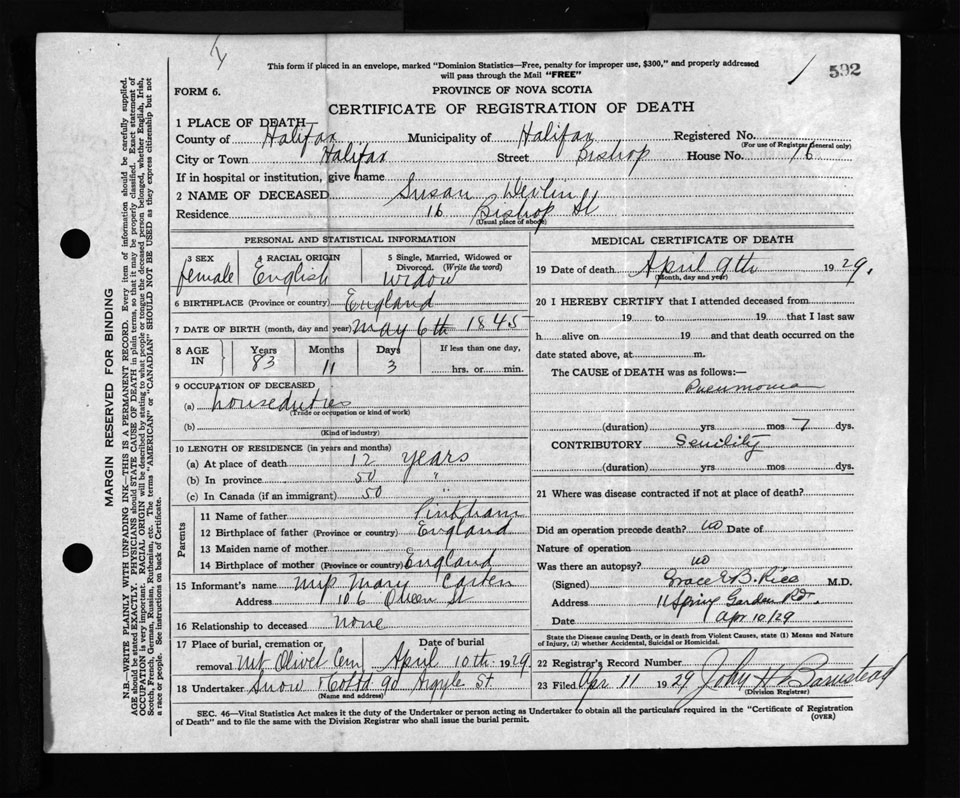 This form if placed in an envelope, marked "Dominion Statistics—Free, penalty for improper use, $300," and properly addressed
will pass through the Mail "FREE"
592
FORM 6.
PROVINCE OF NOVA SCOTIA
CERTIFICATE OF REGISTRATION OF DEATH
1 PLACE OF DEATH
County of Halifax Municipality of Halifax Registered No.
(For use of Registrar General only)
City or Town Halifax Street Bishop House No. 16
If in hospital or institution, give name
2 NAME OF DECEASED Susan Devlin
Residence 16 Bishop St
(Usual place of abode)
PERSONAL AND STATISTICAL INFORMATION
3 SEX 4 RACIAL ORIGIN 5 Single, Married, Widowed or
Divorced. (Write the word)
female English Widow
6 BIRTHPLACE (Province or country) England
7 DATE OF BIRTH (month, day and year) May 6th 1845
8 AGE IN Years Months Days If less than one day,
83 11 3 hrs. or min.
9 OCCUPATION OF DECEASED
(a) houseduties
(Trade or occupation or kind of work)
(b)
(Kind of industry)
10 LENGTH OF RESIDENCE (in years and months)
(a) At place of death 12 years
(b) In province 50 "
(c) In Canada (if an immigrant) 50 "
Parents
11 Name of father Pinkham
12 Birthplace of father (Province or country) England
13 Maiden name of mother
14 Birthplace of mother (Province or country) England
15 Informant's name Mrs Mary Carten
Address 106 Queen St
16 Relationship to deceased none
17 Place of burial, cremation or Date of burial
removal Mt Olivet Cem April 10th 1929
18 Undertaker Snow & Co Ltd 90 Argyle St
(Name and address)
MEDICAL CERTIFICATE OF DEATH
19 Date of death April 9th 1929.
(Month, day and year)
20 I HEREBY CERTIFY that I attended deceased from
19 to 19 that I last saw
h alive on 19 and that death occurred on the
date stated above, at m.
The CAUSE of DEATH was as follows:—
Pneumonia
(duration) yrs mos 7 dys.
CONTRIBUTORY Senility
(duration) yrs mos dys.
21 Where was disease contracted if not at place of death?
Did an operation precede death? no Date of
Nature of operation
Was there an autopsy? no
(Signed) Grace E B. Rice M.D.
Address 11 Spring Garden Rd.
Date Apr 10/29
State the Disease causing Death, or in death from Violent Causes, state (1) Means and Nature
of Injury, (2) whether Accidental, Suicidal or Homicidal.
22 Registrar's Record Number
23 Filed Apr 11 1929 John H Barnstead
(Division Registrar)
SEC. 46—Vital Statistics Act makes it the duty of the Undertaker or person acting as Undertaker to obtain all the particulars required in the "Certificate of Registration
of Death" and to file the same with the Division Registrar who shall issue the burial permit. (OVER)
MARGIN RESERVED FOR BINDING
N.B.—WRITE PLAINLY WITH UNFADING INK—THIS IS A PERMANENT RECORD. Every item of information should be carefully supplied.
AGE should be stated EXACTLY. PHYSICIANS should STATE CAUSE OF DEATH in plain terms, so that it may be properly classified. Exact statement of
OCCUPATION is very important. RACIAL ORIGIN will be described by stating to what people or tongue the deceased person belonged, whether English, Irish,
Scotch, French, German, Russian, Ruthenian, etc. The terms "AMERICAN" or "CANADIAN" SHOULD NOT BE USED as they express citizenship but not
a race or people. See instructions on back of Certificate.